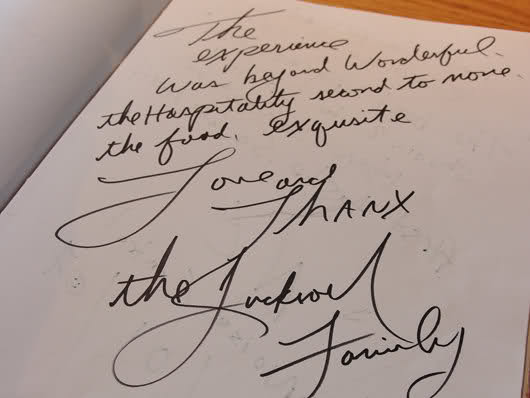 The
experience
was beyond Wonderful.
the Hospitality second to none.
the food, exquisite
Love and
THANX
the
Family